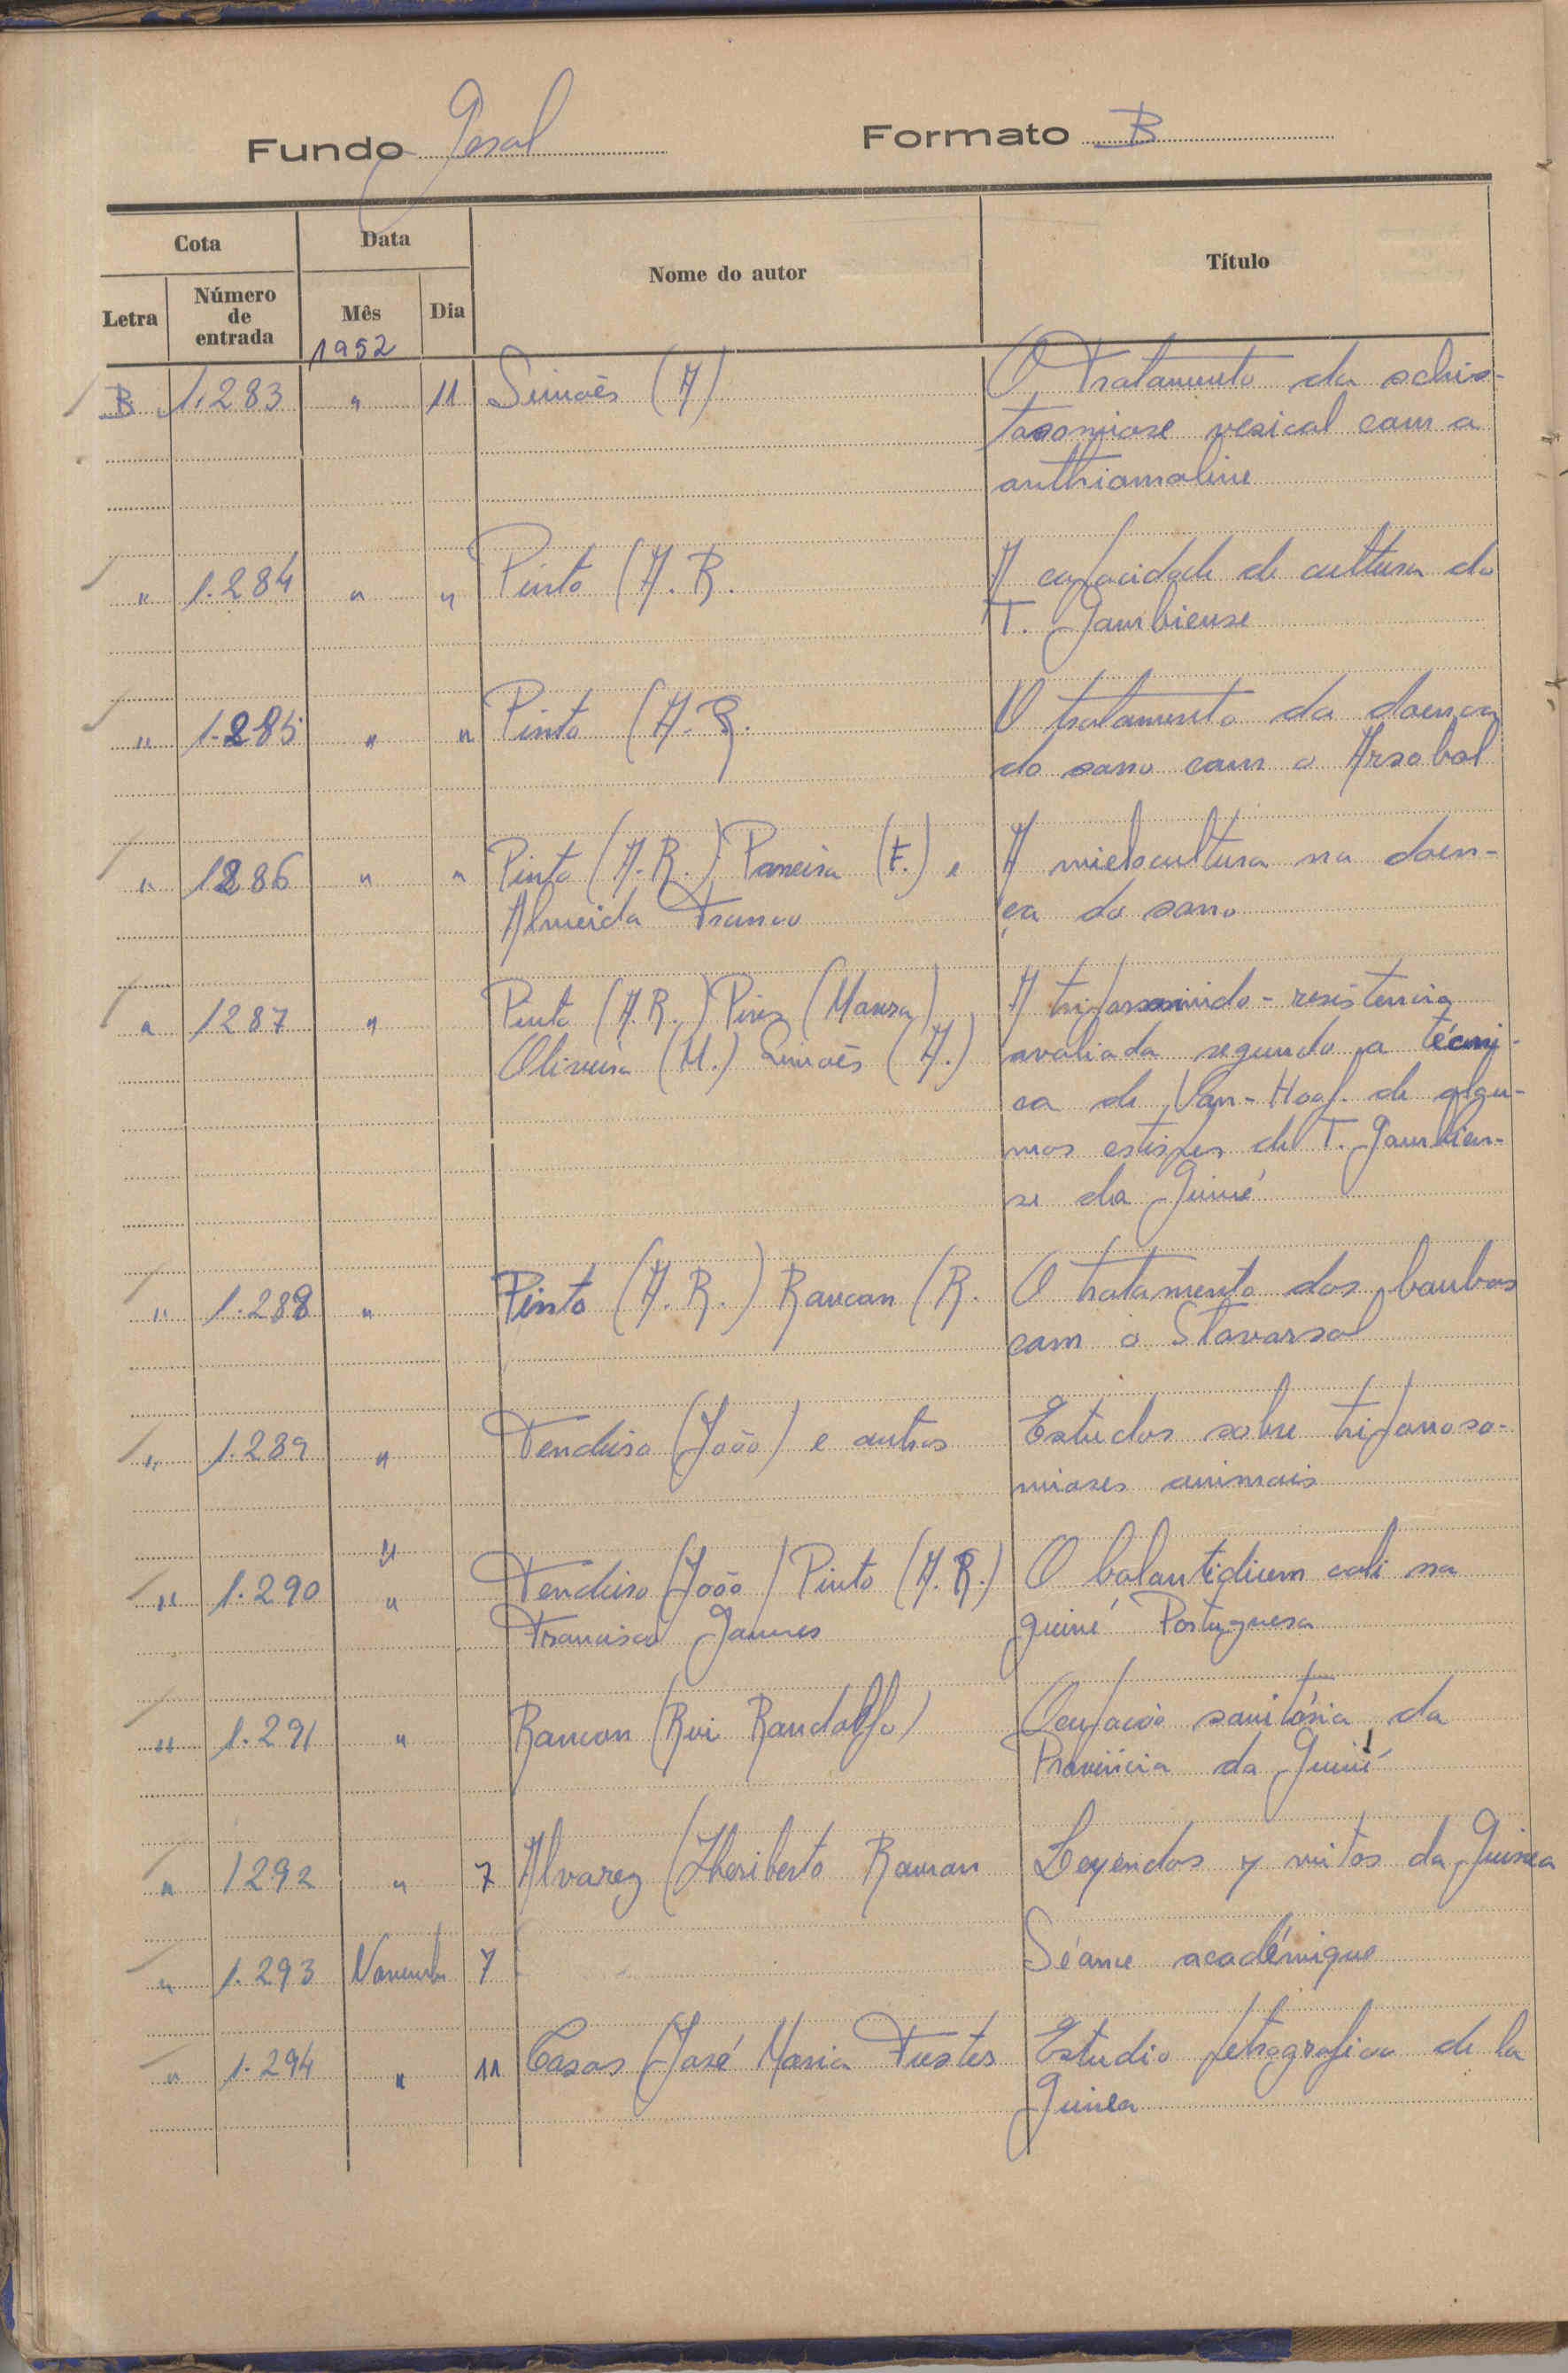 Fundo Geral Formato B
Cota Data Nome do autor Título
Letra Número de entrada Mês Dia
1952
B 1.283 " 11 Simoês (A) O Tratamento da schis-
tosomiose vesical com a
anthiomaline
" 1.284 " " Pinto (A. R. A capacidade de cultura do
T. Gambiense
" 1.285 " " Pinto (A. R. O tratamento da doença
do sono com o Arsobal
" 1286 " " Pinto (A. R.) Pareira (F.) e A mielocultura na doen-
Almeida Franco ça do sono
" 1287 " Pinto (A. R.) Pires (Manza) A tripanomido-resistencia
Oliveira (M.) Simoês (A.) avaliada segundo a técni-
ca de Van-Hoof de algu-
mas estirpes de T. Gambien-
se da Guiné
" 1.288 " Pinto (A. R.) Rancon (R. O tratamento dos boubas
com o Stovarsol
" 1.289 " Tendeiro (João) e outros Estudos sobre tripanoso-
miases animais
"
" 1.290 " Tendeiro (João) Pinto (A. R.) O balantidium coli na
Francisco Gomes guiné Portuguesa
" 1.291 " Rancon (Rui Randolfo) Ocupação sanitária da
Provincia da Guiné
" 1292 " 7 Alvarez (Heriberto Ramon Leyendos y mitos da Guinea
" 1.293 Novembro 7 Séance académique
" 1.294 " 11 Casas (José Maria Fustes Estudio petrografico de la
Guinea